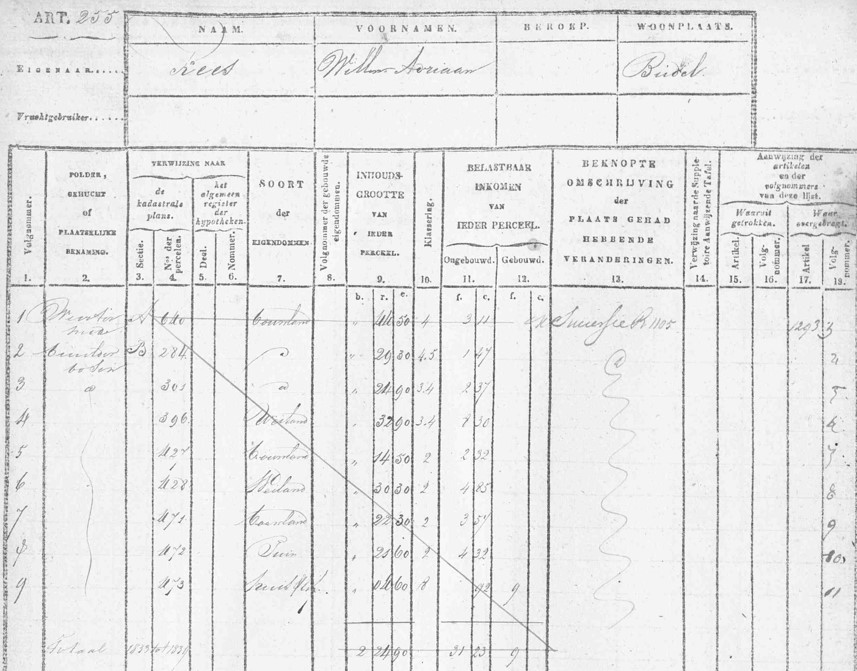 ART. 255
NAAM. VOORNAMEN. BEROEP. WOONPLAATS.
EIGENAAR..... Kees Willem Adriaan Budel
Vruchtgebruiker......
Volgnommer. POLDER, GEHUCHT of PLAATSELIJKE BENAMING. VERWIJZING NAAR de kadastrale plans. het algemeen register der hypotheken. SOORT der EIGENDOMMEN. Volgnommer der gebouwde eigendommen. INHOUDS-GROOTTE VAN IEDER PERCEEL. Klassering. BELASTBAAR INKOMEN VAN IEDER PERCEEL. BEKNOPTE OMSCHRIJVING der PLAATS GEHAD HEBBENDE VERANDERINGEN. Verwijzing naar de Suppletoire Aanwijzende Tafel. Aanwijzing der artikelen en der volgnommers van deze lijst.
Sectie. Nos der perceelen. Deel. Nommer. Ongebouwd. Gebouwd. Waaruit getrokken. Waar overgebragt.
Artikel. Volgnommer. Artikel Volgnommer.
1. 2. 3. 4. 5. 6. 7. 8. 9. 10. 11. 12. 13. 14. 15. 16. 17. 18.
b. r. e. f. c. f. c.
1 A 640 Bouwland " 44 50 4 3 11 Successie R 1105 1293 3
2 B 284 " " 29 80 4.5 1 47 4
3 " 301 " " 24 90 3.4 2 37 5
4 396 Weiland " 32 90 3.4 8 30 6
5 427 Bouwland " 14 50 2 2 32 7
6 428 Weiland " 30 30 2 4 85 8
7 471 Bouwland " 22 30 2 3 57 9
8 472 Tuin " 21 60 2 4 32 10
9 473 " 04 60 8 92 9 11
Totaal 2 24 90 31 23 9